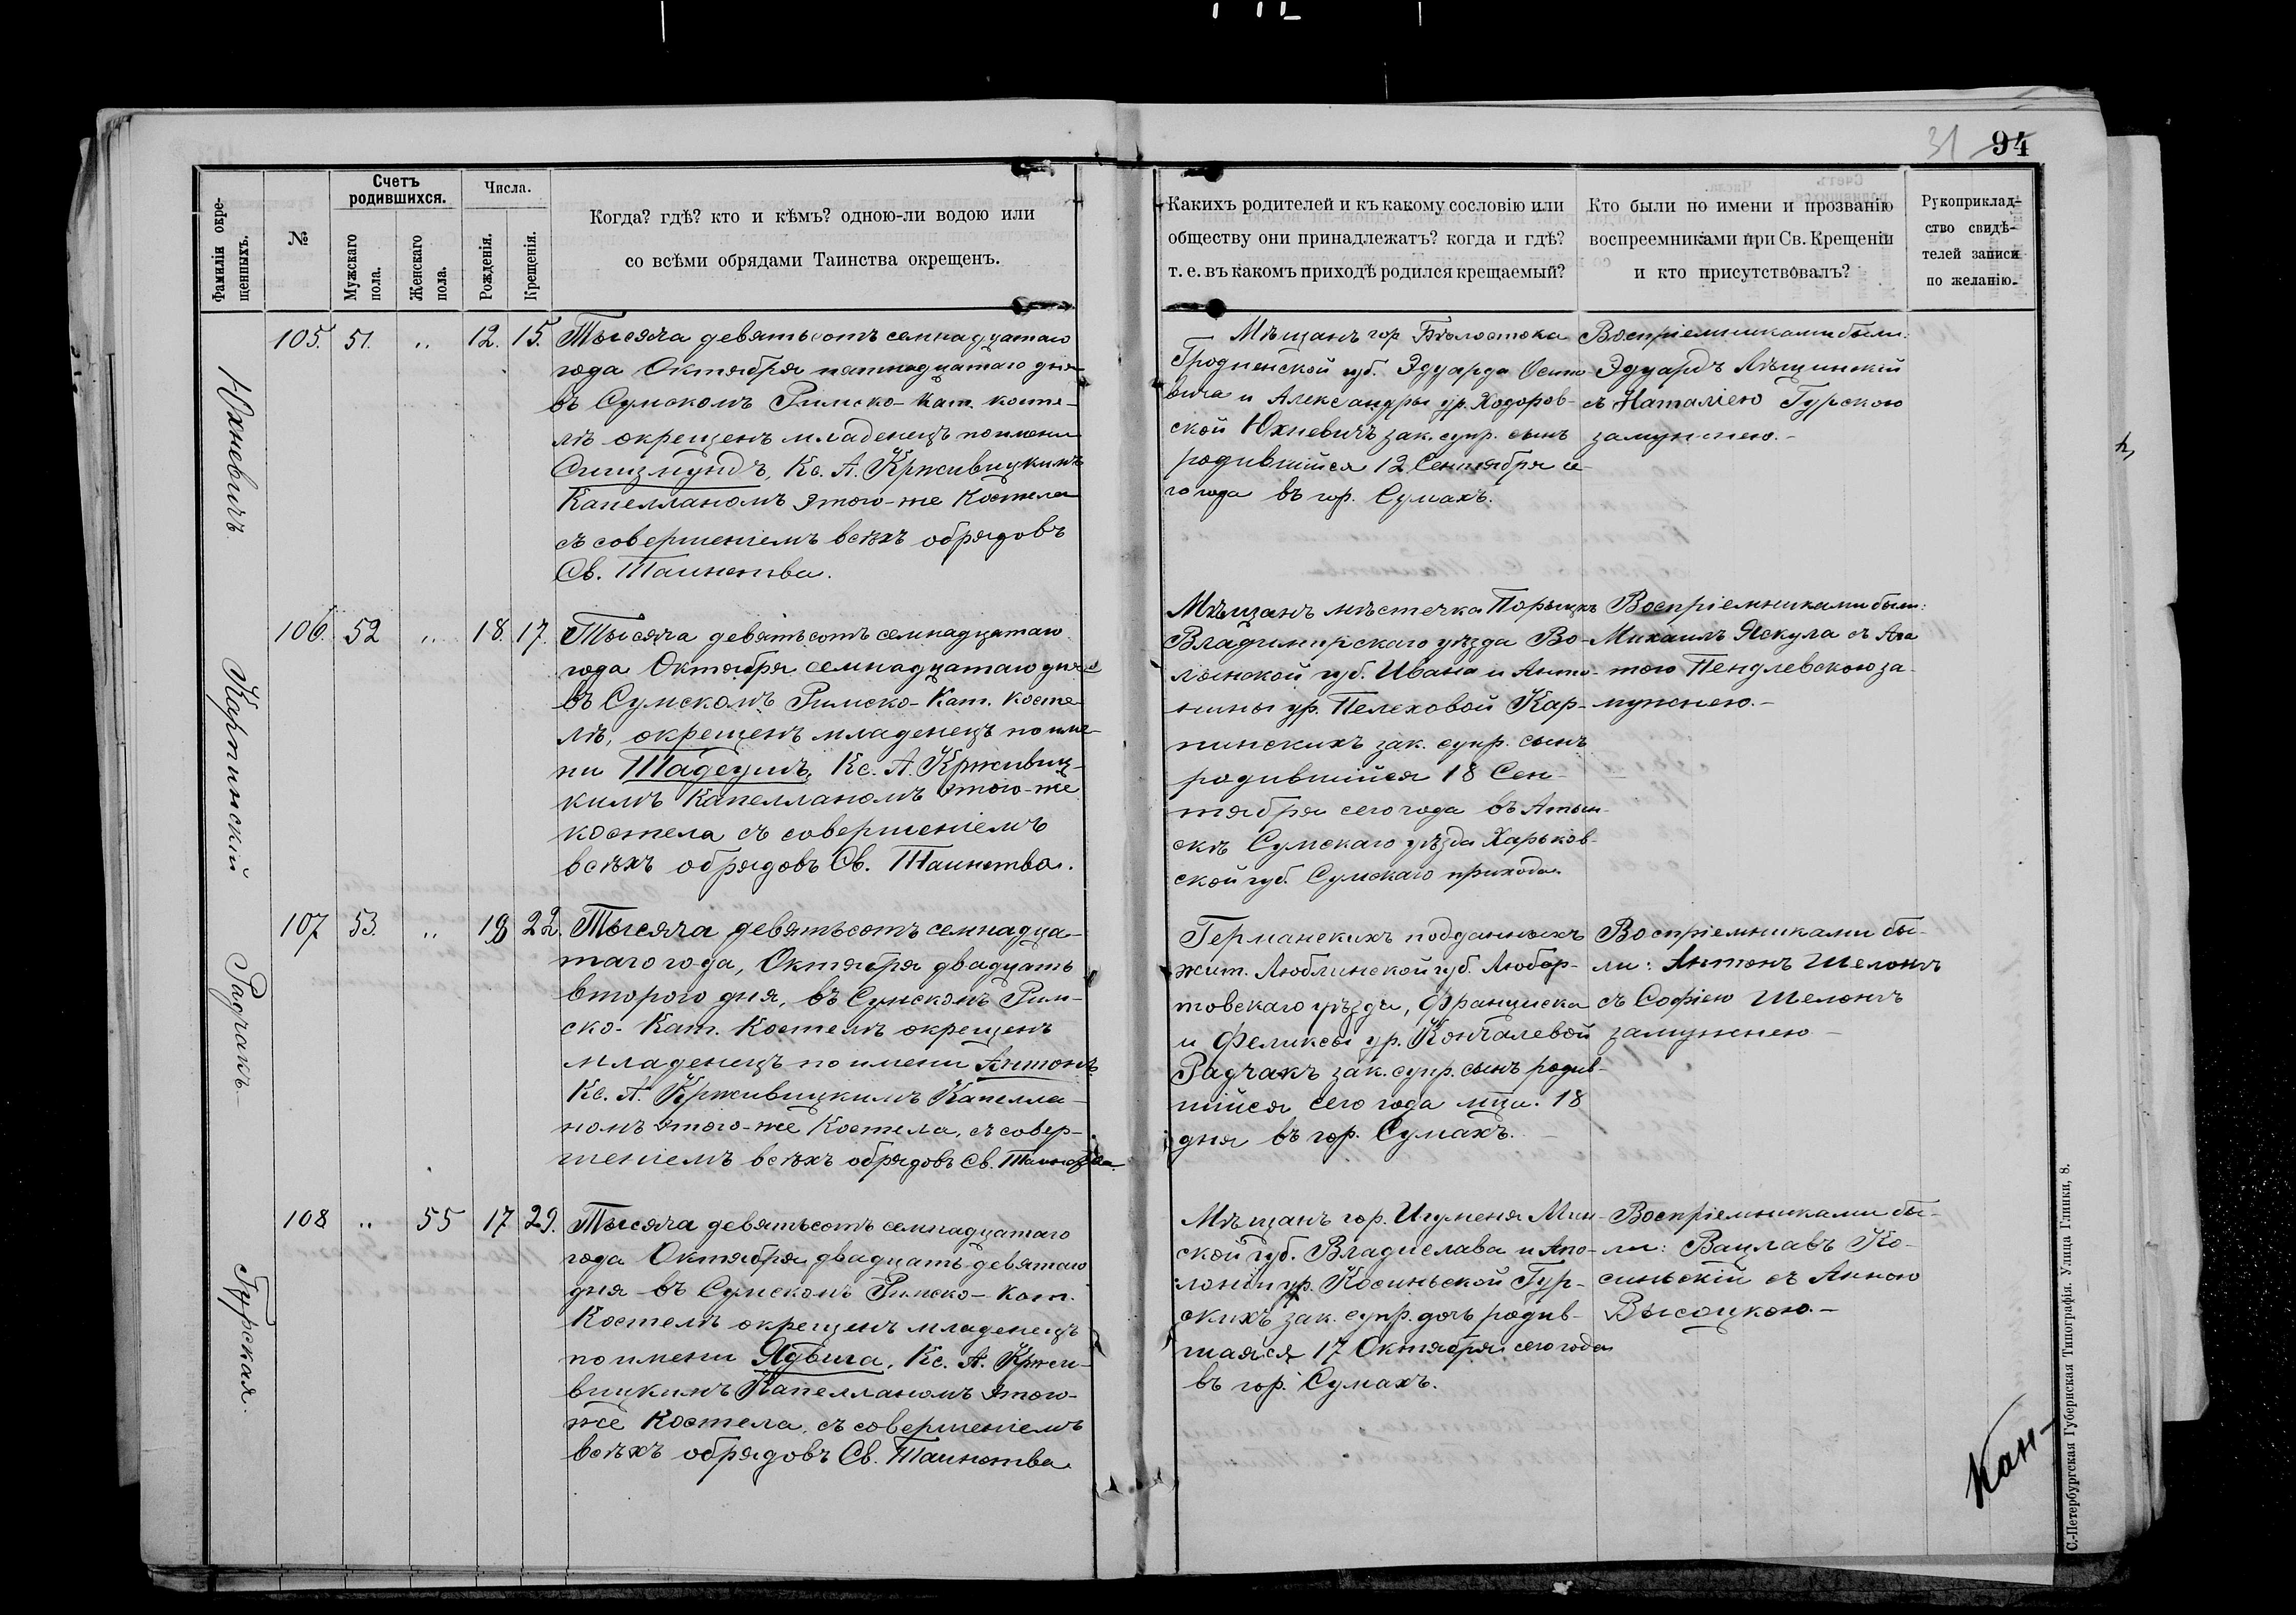 31 94
Фамиліи окре-
щенныхъ.
№
Счетъ
родившихся.
Мужскаго
пола.
Женскаго
пола.
Числа.
Рожденія.
Крещенія.
Когда? гдѣ? кто и кѣмъ? одною-ли водою или
со всѣми обрядами Таинства окрещенъ.
Какихъ родителей и къ какому сословію или
обществу они принадлежатъ? когда и гдѣ?
т. е. въ какомъ приходѣ родился крещаемый?
Кто были по имени и прозванію
воспреемниками при Св. Крещеніи
и кто присутствовалъ?
Рукоприклад-
ство свидѣ-
телей записи
по желанію.
Юхневичъ
105. 51. „ 12. 15.
Тысяча девятьсотъ семнадцатаго
года Октября пятнадцатаго дня
въ Сумскомъ Римско-Кат. косте-
лѣ окрещенъ младенецъ по имени
Сигизмундъ, Кс. А. Крживицкимъ
Капелланомъ этого-же Костела
съ совершеніемъ всѣхъ обрядовъ
Св. Таинства.
Мѣщанъ гор. Бѣлостока
Гродненской губ. Эдуарда Осипо-
вича и Александры ур. Ходоров-
ской Юхневичъ зак. супр. сынъ
родившійся 12 Сентября се-
го года въ гор. Сумахъ.
Воспріемниками были:
Эдуардъ Лѣщинскій
съ Наталіею Гурскою
замужнею.-
Карпинскій
106. 52 „ 18. 17.
Тысяча девятьсотъ семнадцатаго
года Октября семнадцатаго дня
въ Сумскомъ Римско-Кат. Косте-
лѣ, окрещенъ младенецъ по име-
ни Тадеушъ, Кс. А. Крживиц-
кимъ Капелланомъ этого-же
костела съ совершеніемъ
всѣхъ обрядовъ Св. Таинства.
Мѣщанъ мѣстечка Порыцкъ
Владимирскаго уѣзда Во-
лынской губ. Ивана и Анто-
нины ур. Пелеховой Кар-
пинскихъ зак. супр. сынъ
родившійся 18 Сен-
тября сего года въ Атын-
скѣ Сумскаго уѣзда Харьков-
ской губ. Сумскаго прихода.
Воспріемниками были:
Михаилъ Яскула съ Ага
тою Пендлевскою за-
мужнею.-
Радчакъ
107 53. „ 18 22.
Тысяча девятьсотъ семнадца-
таго года, Октября двадцать
второго дня, въ Сумскомъ Рим-
ско-Кат. Костелѣ окрещенъ
младенецъ по имени Антонъ,
Кс. А. Крживицкимъ Капелла-
номъ этого-же Костела, съ совер-
шеніемъ всѣхъ обрядовъ Св. Таинства.
Германскихъ подданныхъ
жит. Люблинской губ. Любар-
товскаго уѣзда, Франциска
и Феликсы ур. Кончалевой
Радчакъ зак. супр. сынъ родив-
шійся сего года мца. 18
дня въ гор. Сумахъ.
Воспріемниками бы-
ли: Антонъ Шелонгъ
съ Софіею Шелонгъ
замужнею-
Гурская.
108 „ 55 17 29.
Тысяча девятьсотъ семнадцатаго
года Октября двадцать девятаго
дня въ Сумскомъ Римско-Кат.
Костелѣ окрещенъ младенецъ
по имени Ядвига, Кс. А. Кржи-
вицкимъ Капелланомъ этого-
же Костела, съ совершеніемъ
всѣхъ обрядовъ Св. Таинства.
Мѣщанъ гор. Игуменя Мин-
ской губ. Владислава и Апо-
лоніи ур. Косиньской Гур-
скихъ зак. супр. дочь родив-
шаяся 17 Октября сего года
въ гор. Сумахъ.
Воспріемниками бы-
ли: Вацлавъ Ко-
синьскій съ Анною
Высоцкою.-
Кан-
С.-Петербургская Губернская Типографія. Улица Глинки, 8.